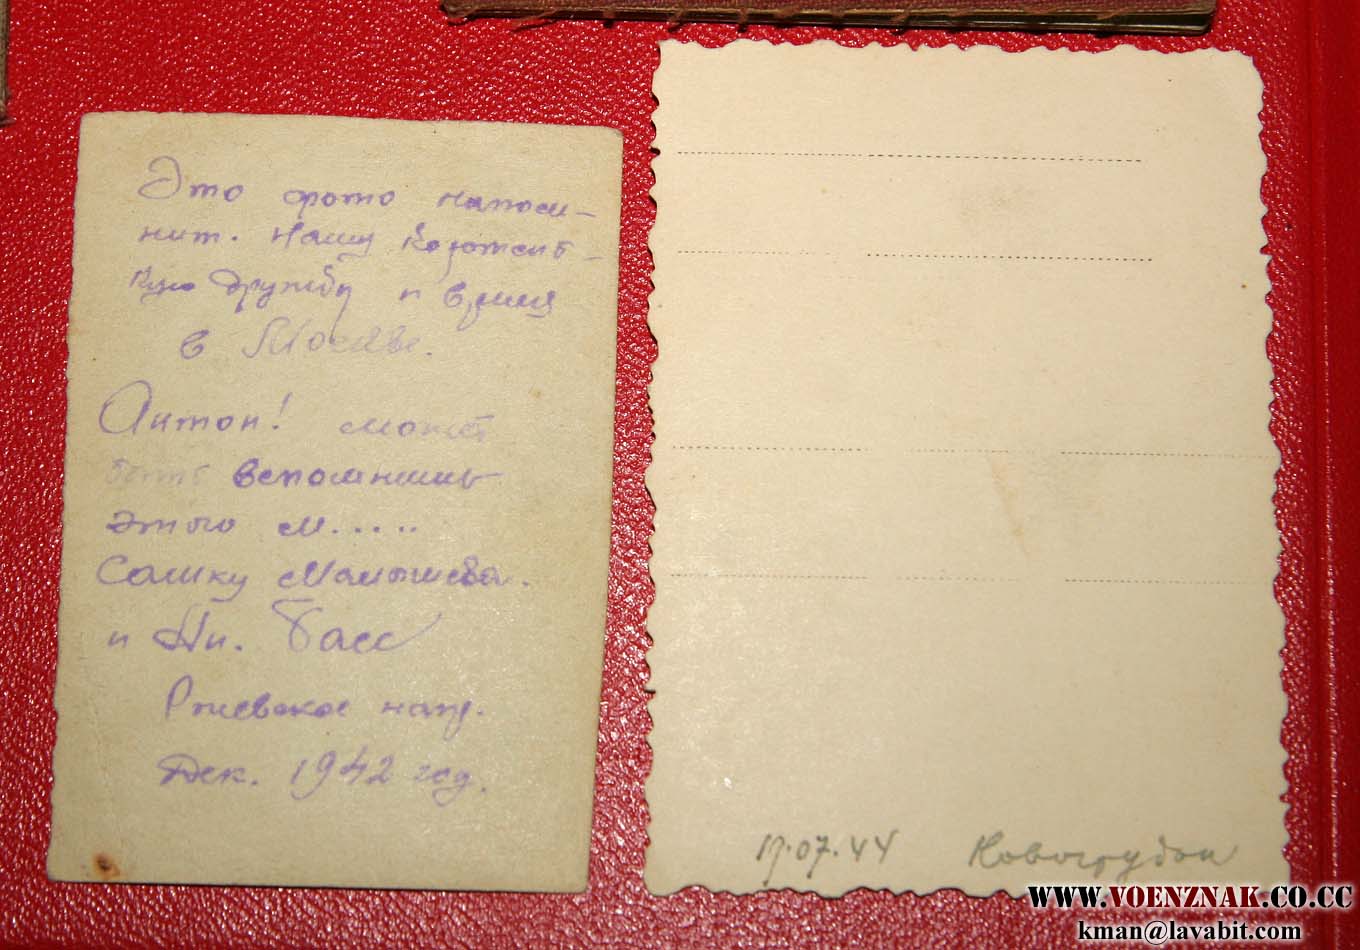 Это фото напом-
нит. Нашу
кую дружбу и время
в Москве.
Антон! может
быть вспомнишь
этого м.....
Сашку Малышева.
и Ник. Басс
Ржевское напр.
Дек. 1942 год.
07.44 Новогрудок
WWW.VOENZNAK.CO.CC
kman@lavabit.com